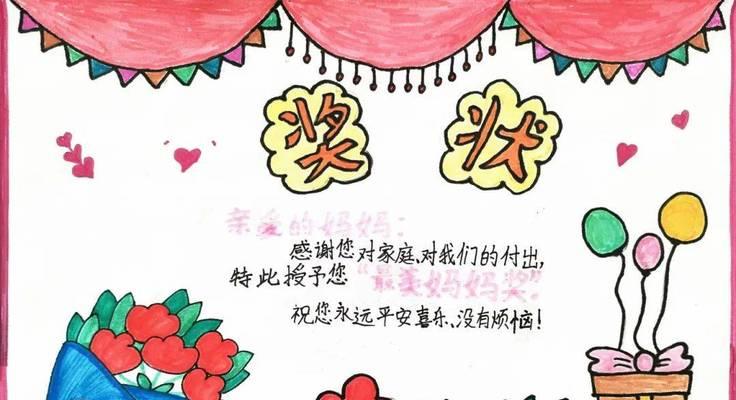 奖状
亲爱的妈妈:
感谢您对家庭、对我们的付出,
特此授予您“最美妈妈奖”.
祝您永远平安喜乐、没有烦恼!